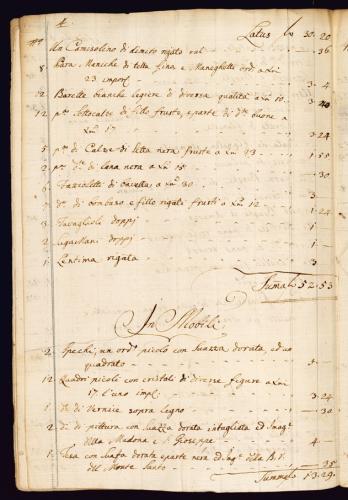 4.
Latus lv 30. 20
Un Camisolino di dimito rigato val - - - 36
8 Para Maniche di tella fina e Maneghetti ord: a xni
23 import - - - 3. 4
12 Barette bianche legiere di diversa qualità a xni 10. - 3.
12 pra Sottocalze di fillo fruste, e parte di dte buone a
xni 17. - - - 3. 24
5 pra di Calze di setta nera fruste a xni 23 - - 1. 55
2 pra dte di lana nera a xni 15 - - - 30
6 Fazzoletti di a xni 30. - - 3.
7 di di bombaso e fillo rigati frusti a xni 12 - - 1. 24
3 Tavaglioli doppj - - - 1. -
2 doppj - - - 1. -
1. rigata - - - 3. -
Summa lv 52. 53
In Mobili
2. Spechi, un ordo picolo con Suazza dorata, ed uno
quadrato - - - 3. -
12 Quadri picoli con cristali di diverse figure a xni
17 l'uno impl - - - 3. 24
1. di di Vernice sopra legno - - - 30
2. di di pittura con suazza dorata intagliata ed Imagi
della Madona e S. Gioseppe - - 4. -
1. con suaza dorata e parte nera ed Imge della B. V.
del Monte Santo - - - 35
Summa lv 13. 29.